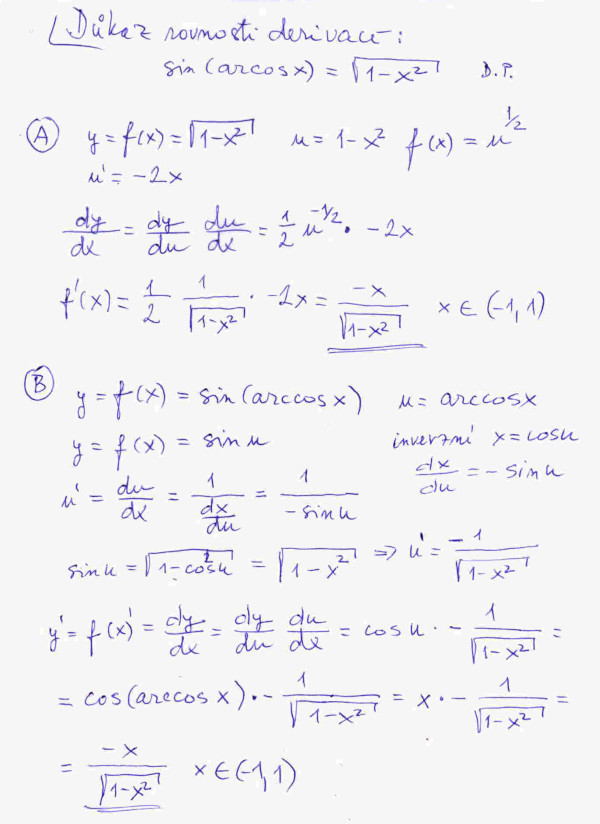 Důkaz rovnosti derivací:
sin(arcosx) = √(1-x²) D.P.
(A) y = f(x) = √(1-x²) u = 1-x² f(x) = u^(1/2)
u' = -2x
dy/dx = dy/du du/dx = 1/2 u^(-1/2) · -2x
f'(x) = 1/2 1/√(1-x²) · -2x = -x/√(1-x²) x ∈ (-1,1)
(B) y = f(x) = sin(arccosx) u = arccosx
y = f(x) = sin u inverzní x = cosu
u' = du/dx = 1/(dx/du) = 1/(-sinu) dx/du = -sinu
sinu = √(1-cos²u) = √(1-x²) ⇒ u' = -1/√(1-x²)
y' = f(x)' = dy/dx = dy/du du/dx = cosu · - 1/√(1-x²) =
= cos(arccosx) · - 1/√(1-x²) = x · - 1/√(1-x²) =
= -x/√(1-x²) x ∈ (-1,1)